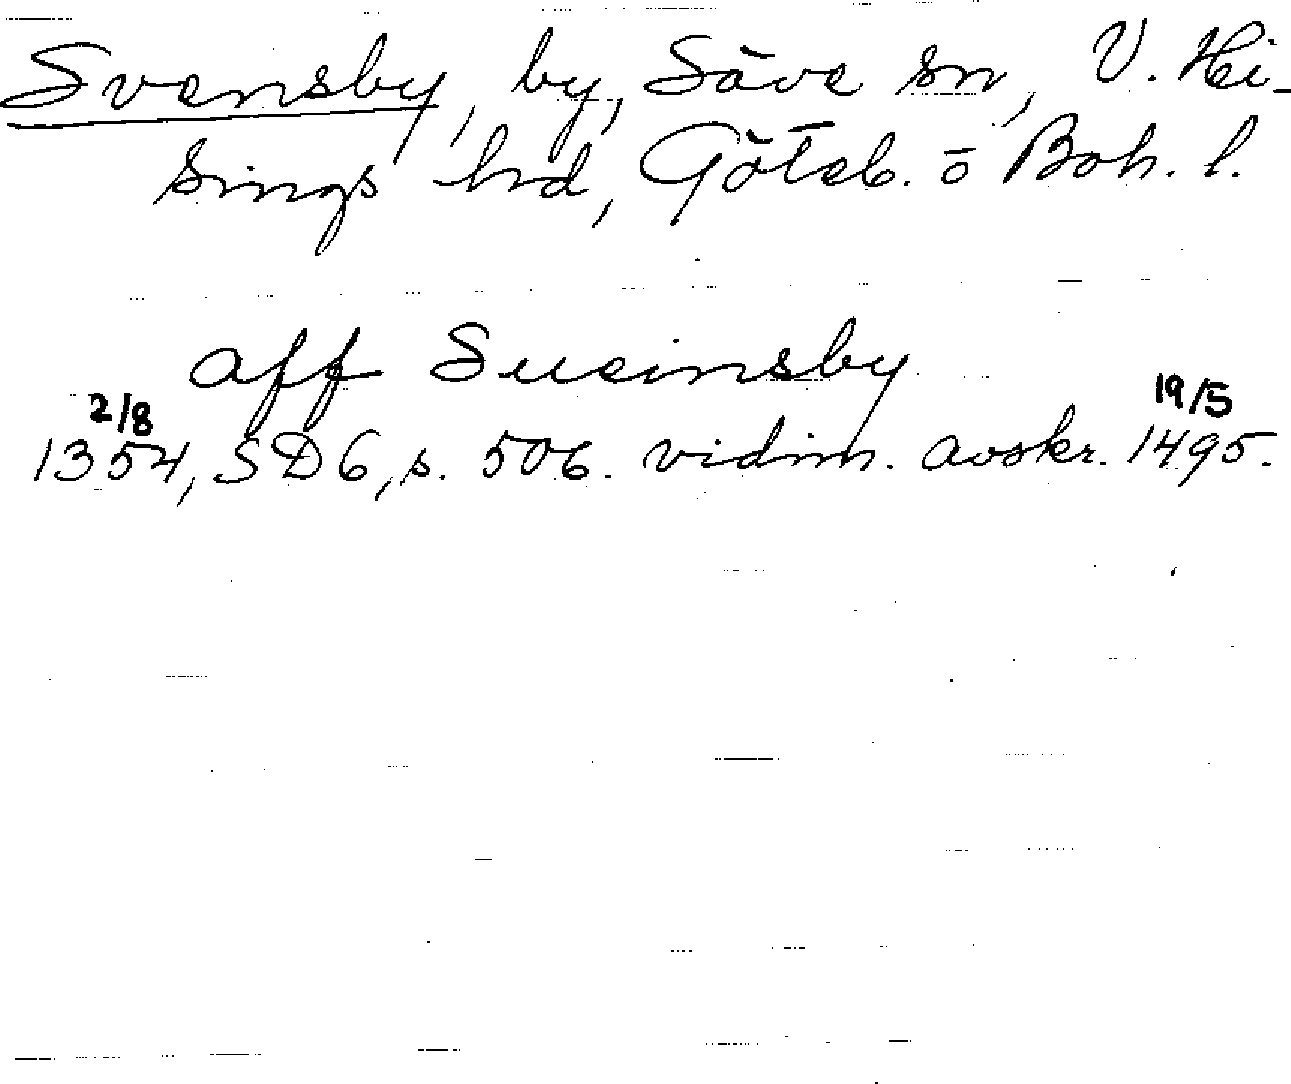 Svensby, by, Säve sn, V. Hi-
sings hd, Göteb. o Boh. l.
aff Sueinsby
2/8 19/5
1354, SD 6, s. 506. vidim. avskr. 1495.